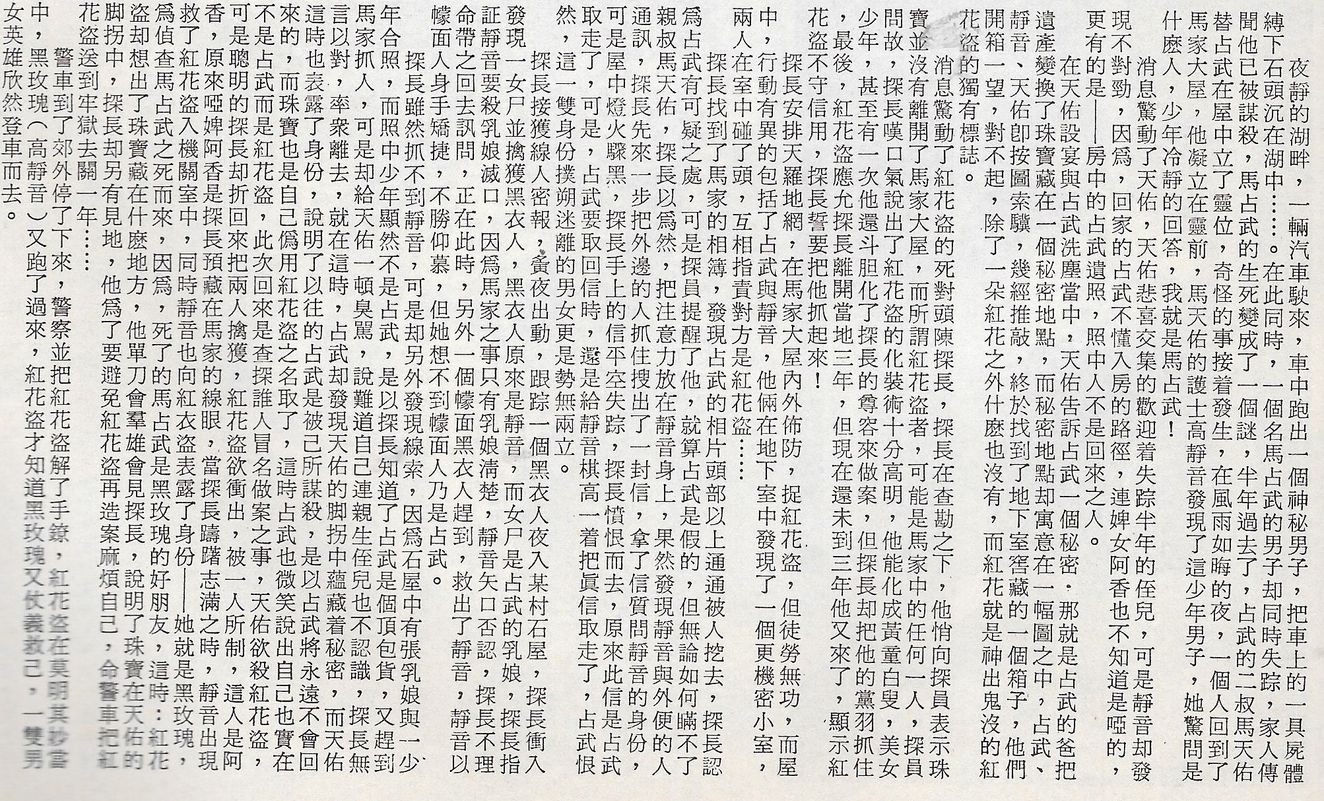 夜靜的湖畔，一輛汽車駛來，車中跑出一個神秘男子，把車上的一具屍體
縛下石頭沉在湖中……。在此同時，一個名馬占武的男子却同時失踪，家人傳
聞他已被謀殺，馬占武的生死變成了一個謎，半年過去了，占武的二叔馬天佑
替占武在屋中立了靈位，奇怪的事接着發生，在風雨如晦的夜，一個人回到了
馬家大屋，他凝立在靈前，馬天佑的護士高靜音發現了這少年男子，她驚問是
什麼人，少年冷靜的回答，我就是馬占武！
消息驚動了天佑，天佑悲喜交集的歡迎着失踪半年的侄兒，可是靜音却發
現不對勁，因爲，回家的占武不懂入房的路徑，連婢女阿香也不知道是啞的，
更有的是——房中的占武遺照，照中人不是回來之人。
在天佑設宴與占武洗塵當中，天佑告訴占武一個秘密．那就是占武的爸把
遺產變換了珠寶藏在一個秘密地點，而秘密地點却寓意在一幅圖之中，占武、
靜音、天佑卽按圖索驥，幾經推敲，終於找到了地下室窖藏的一個箱子，他們
開箱一望，對不起，除了一朵紅花之外什麽也沒有，而紅花就是神出鬼沒的紅
花盜的獨有標誌。
消息驚動了紅花盜的死對頭陳探長，探長在查勘之下，他悄向探員表示珠
寶並沒有離開了馬家大屋，而所謂紅花盜者，可能是馬家中的任何一人，探員
問故，探長嘆口氣說出了紅花盜的化裝術十分高明，他能化成黃童白叟，美女
少年，甚至有一次他還斗胆化了探長的尊容來做案，但探長却把他的黨羽抓住
，最後，紅花盜應允探長離開當地三年，但現在還未到三年他又來了，顯示紅
花盜不守信用，探長誓要把他抓起來！
探長安排天羅地網，在馬家大屋內外佈防，捉紅花盜，但徒勞無功，而屋
中，行動有異的包括了占武與靜音，他倆在地下室中發現了一個更機密小室，
兩人在室中碰了頭，互相指責對方是紅花盜……
探長找到了馬家的相簿，發現占武的相片頭部以上通通被人挖去，探長認
爲占武有可疑之處，可是探員提醒了他，就算占武是假的，但無論如何瞞不了
親叔馬天佑，探長以爲然，把注意力放在靜音身上，果然發現靜音與外便的人
通訊，探長先來一步把外邊的人抓住搜出了一封信，拿了信質問靜音的身份，
可是屋中燈火驟黑，探長手上的信平空失踪，探長憤恨而去，原來此信是占武
取走了，可是，占武要取回信時，還是給靜音棋高一着把眞信取走了，占武恨
然，這一雙身份撲朔迷離的男女更是勢無兩立。
探長接獲線人密報，夤夜出動，跟踪一個黑衣人夜入某村石屋，探長衝入
發現一女尸並擒獲黑衣人，黑衣人原來是靜音，而女尸是占武的乳娘，探長指
証靜音要殺乳娘滅口，因爲馬家之事只有乳娘淸楚，靜音矢口否認，探長不理
命帶之回去訊問，正在此時，另外一個幪面黑衣人趕到，救出了靜音，靜音以
幪面人身手矯捷，不勝仰慕，但她想不到幪面人乃是占武。
探長雖然抓不到靜音，可是却另外發現線索，因爲石屋中有張乳娘與一少
年合照，而照中少年顯然不是占武，是以探長知道了占武是個頂包貨，又趕到
馬家抓人，可是却給天佑一頓臭駡，說難道自己連親生侄兒也不認識，探長無
言以對，率衆離去，就在這時，占武却發現天佑的脚拐中蘊藏着秘密，而天佑
這時也表露了身份，說明了以往的占武是被己所謀殺，是以占武將永遠不會回
來的，而珠寶也是自己僞用紅花盜之名取了，這時占武也微笑說出自己也實在
不是占武而是紅花盜，此次回來是查探誰人冒名做案之事，天佑欲殺紅花盜，
可是聰明的探長却折回來把兩人擒獲，紅花盜欲衝出，被一人所制，這人是阿
香，原來啞婢阿香是探長預藏在馬家的線眼，當探長躊躇志滿之時，靜音出現
救了紅花盜入機關室中，同時靜音也向紅衣盜表露了身份——她就是黑玫瑰，
爲偵查馬占武之死而來，因爲，死了的馬占武是黑玫瑰的好朋友，這時：紅花
盜却想出了珠寶藏在什麽地方，他單刀會羣雄會見探長，說明了珠寶在天佑的
脚拐中，探長却另有見地，他爲了要避免紅花盜再造案麻煩自己，命警車把紅
花盜送到牢獄去關一年……
警車到了郊外停了下來，警察並把紅花盜解了手鐐，紅花盜在莫明其妙當
中，黑玫瑰（高靜音）又跑了過來，紅花盜才知道黑玫瑰又仗義救己，一雙男
女英雄欣然登車而去。